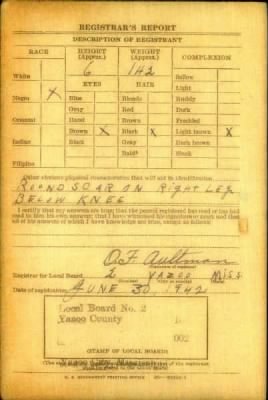 REGISTRAR'S REPORT
DESCRIPTION OF REGISTRANT
RACE HEIGHT (Approx.) WEIGHT (Approx.) COMPLEXION
White 6 142 Sallow
EYES HAIR Light
Negro X Blue Blonde Ruddy
Gray Red Dark
Oriental Hazel Brown Freckled
Brown X Black X Light brown X
Indian Black Gray Dark brown
Bald Black
Filipino
Other obvious physical characteristics that will aid in identification
ROUND SCAR ON RIGHT LEG
BELOW KNEE
I certify that my answers are true; that the person registered has read or has had
read to him his own answers; that I have witnessed his signature or mark and that
all of his answers of which I have knowledge are true, except as follows:
O. F. Aultman
Registrar for Local Board 2 YAZOO MISS
Date of registration JUNE 30, 1942
Local Board No. 2
Yazoo County
002
(STAMP OF LOCAL BOARD)